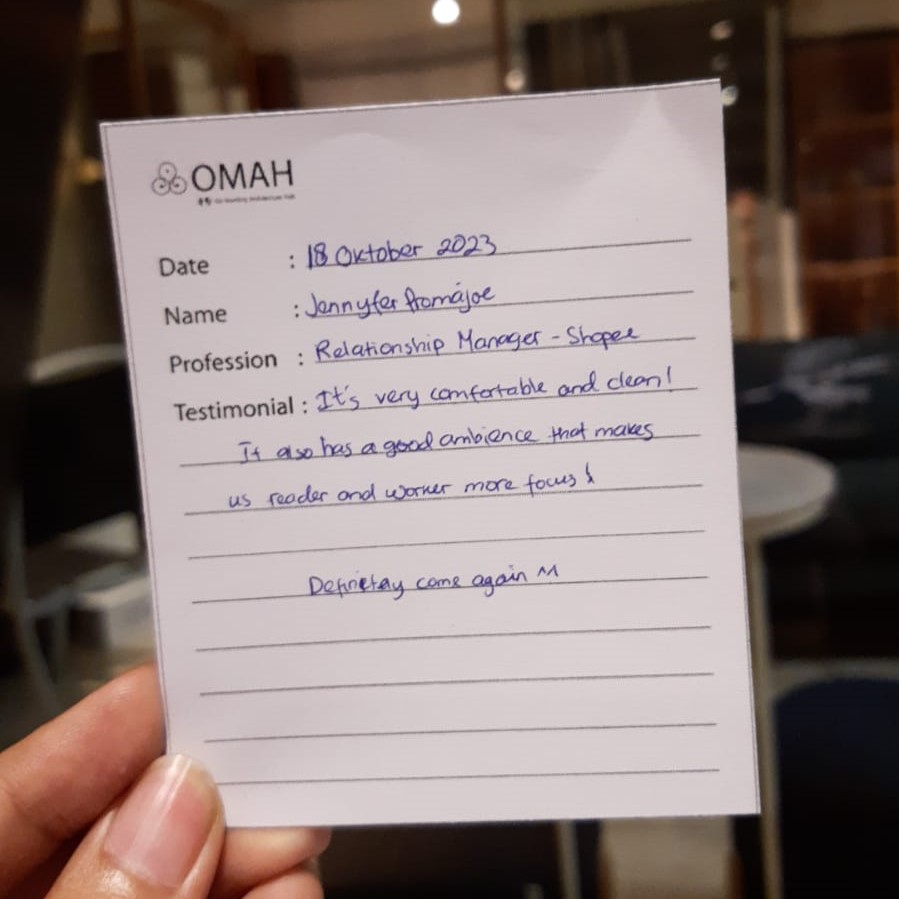 OMAH
Date : 18 Oktober 2023
Name : Jennyfer
Profession : Relationship Manager - Shopee
Testimonial : It's very comfortable and clean!
It also has a good ambience that makes
us reader and worker more focus!
Definetlay come again ^^